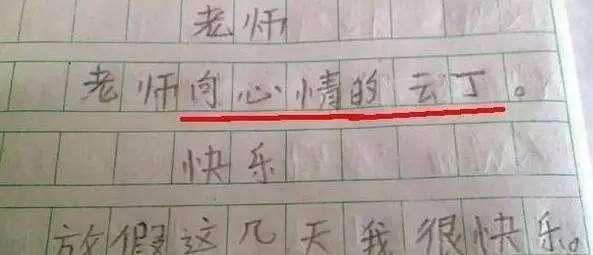 老师
老师向心情的云丁。
快乐
放假这几天我很快乐。